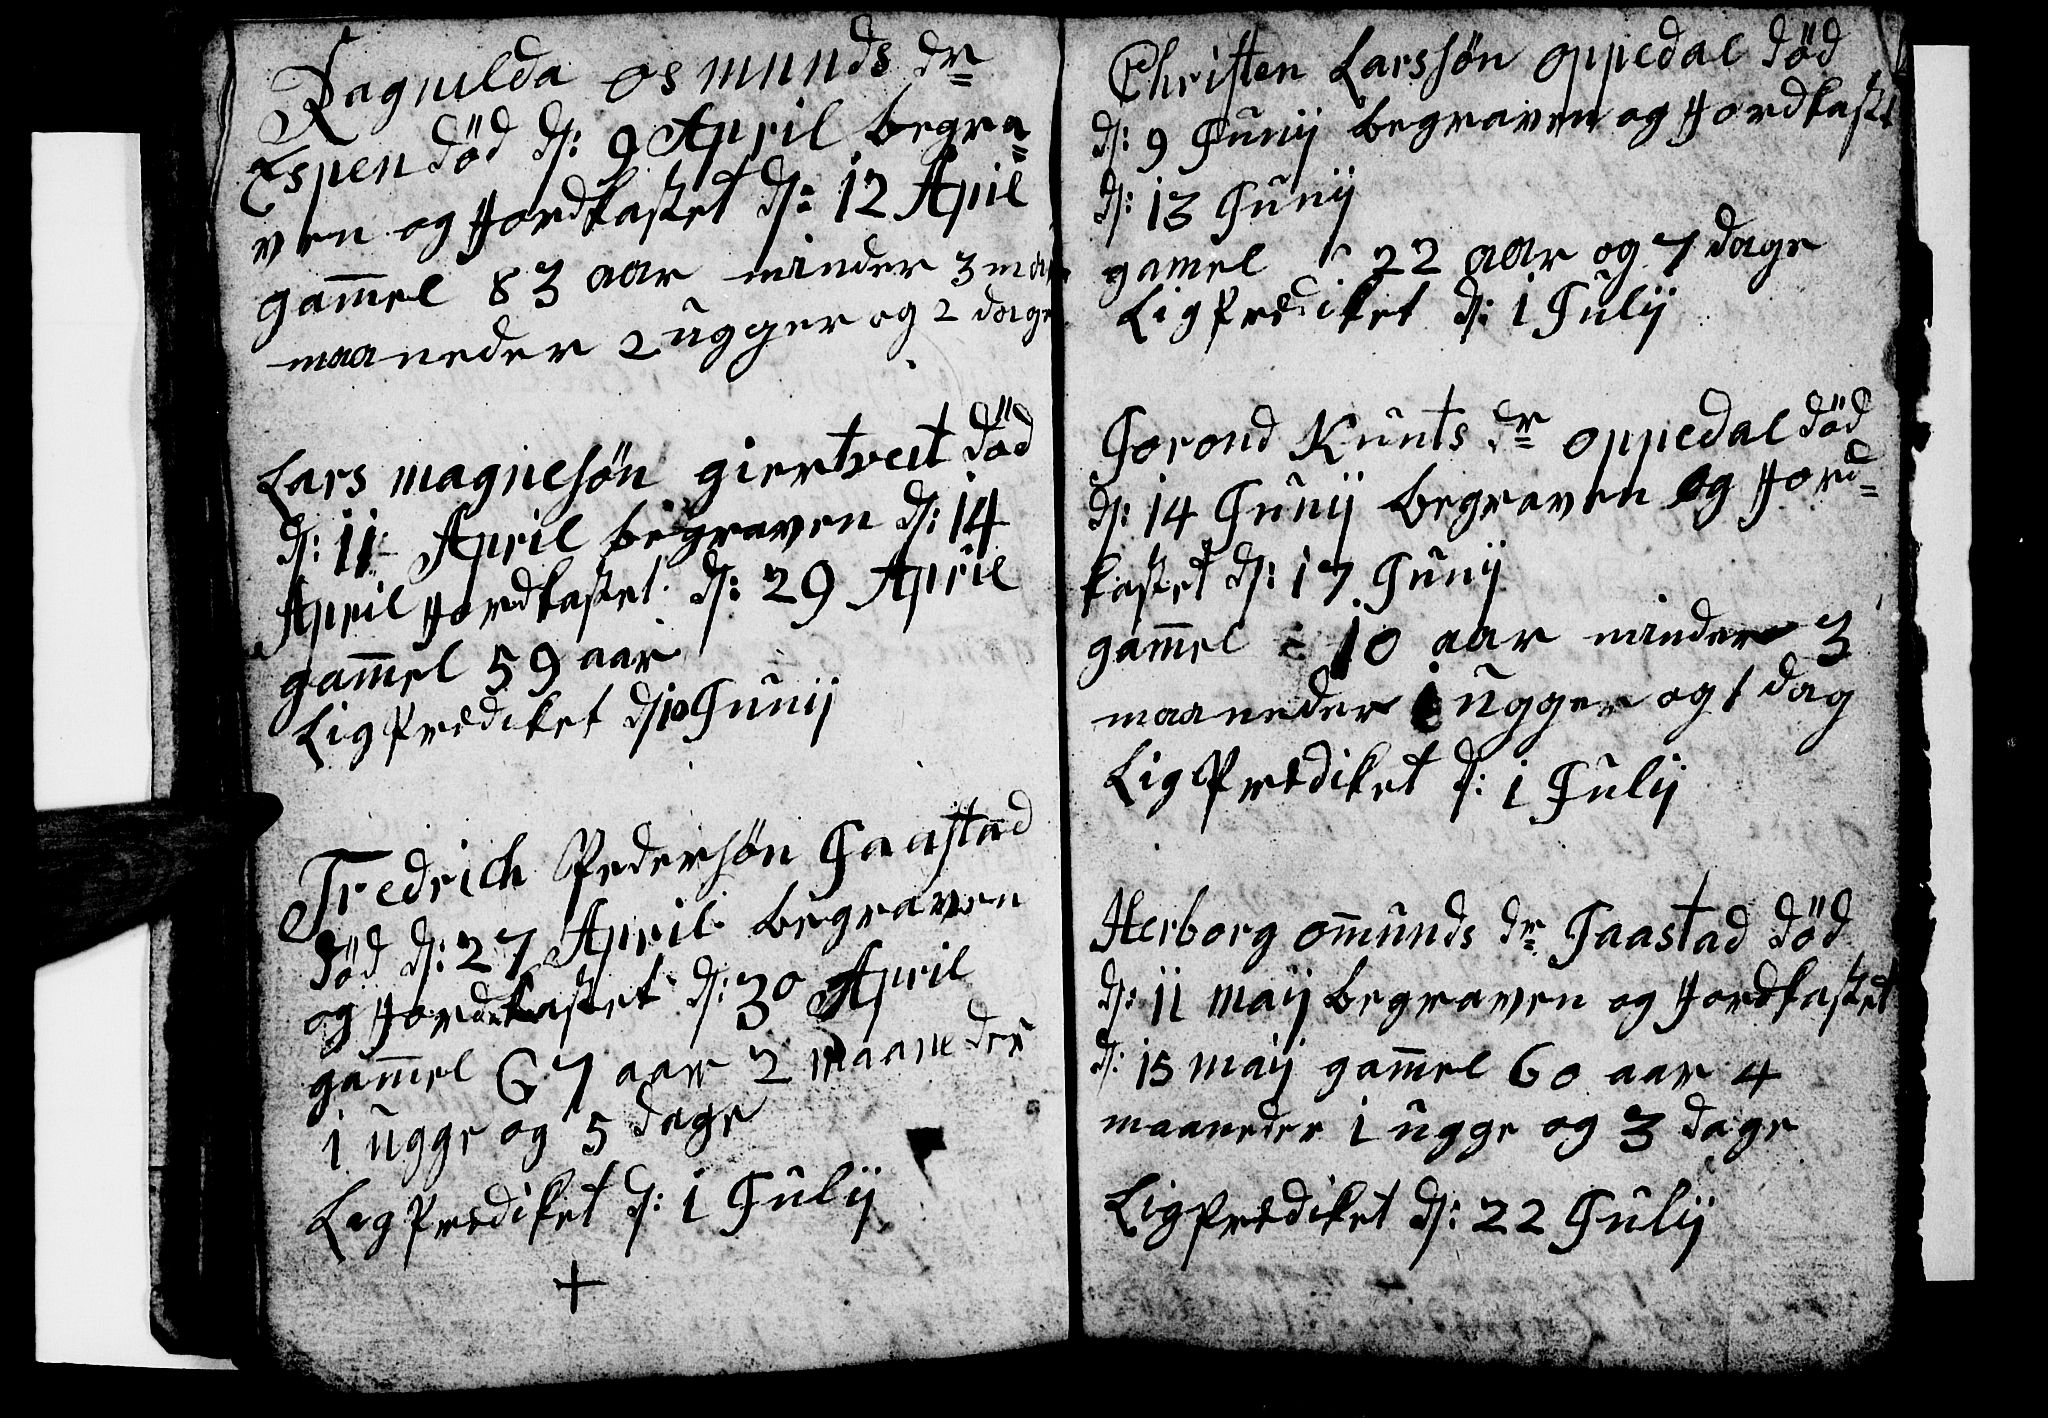 Ragnilda osmunds dr
Espen död d: 9 April begra=
ven og Jordkastet d: 12 April
gam̄el 83 aar minder 3
maaneder 2 ugger og 2 dage
Lars magnesøn giertveit död
d: 11 April begraven d: 14
April Jordkastet d: 29 April
gam̄el 59 aar
Lig Prediket d: 10 Junij
Fredrich Pedersøn Jaastad
död d: 27 April begraven
og Jordkastet d: 30 April
gam̄el 67 aar 2 maaneder
1 ugge og 5 dage
Lig Prediket d: 1 Julij
+
Christen Larssøn oppedal död
d: 9 Junij begraven og Jordkastet
d: 13 Junij
gamel 22 aar og 7 dage
Lig Prediket d: 1 Julij
Jorond Kunts dr oppedal död
d: 14 Junij begraven og Jord=
kastet d: 17 Junij
gam̄el 10 aar minder 3
maaneder ugger og 1 dag
Lig Prediket d: 1 Julij
Herborg om̄unds dr Jaastad död
d: 11 maij begraven og Jordkastet
d: 15 maij gam̄el 60 aar 4
maaneder 1 ugge og 3 dage
Lig Prediket d: 22 Julij